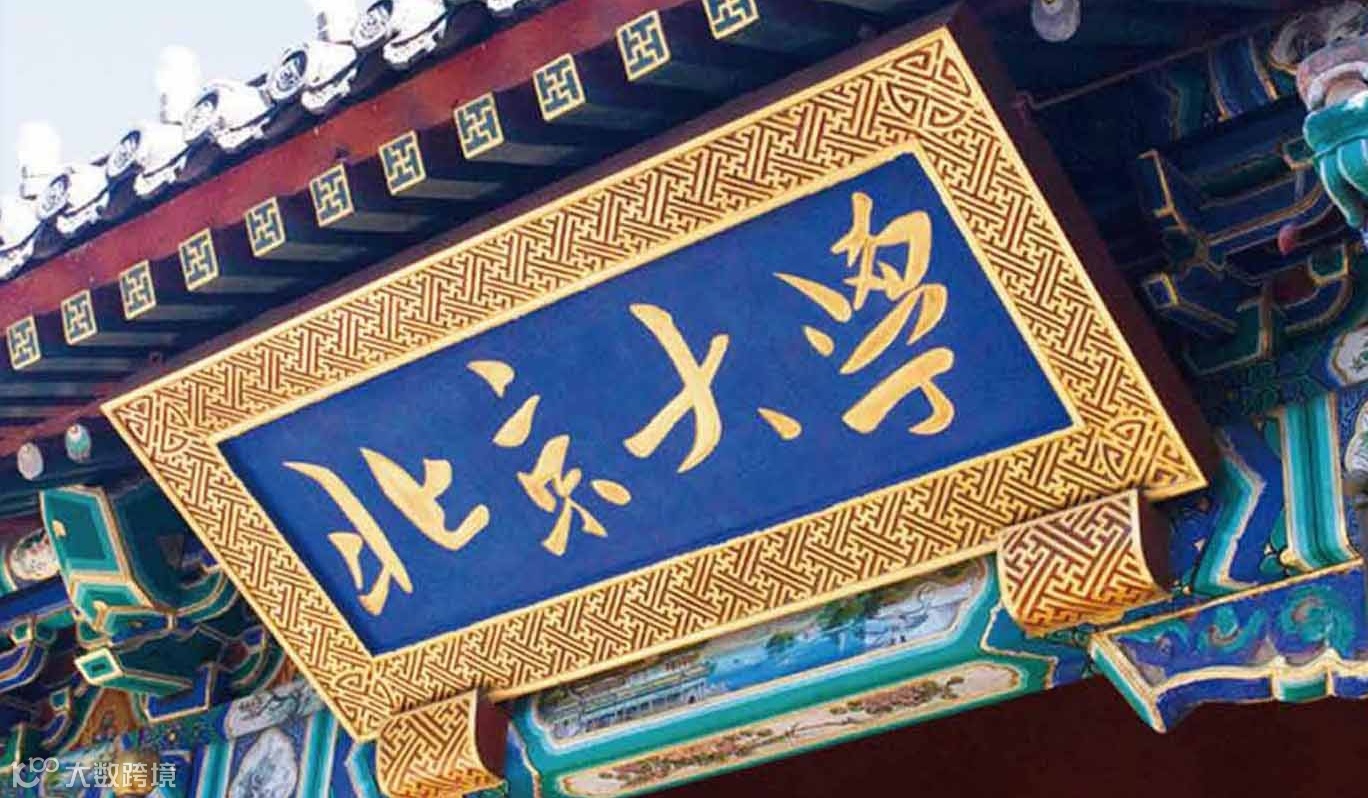 北京大学
大数跨境